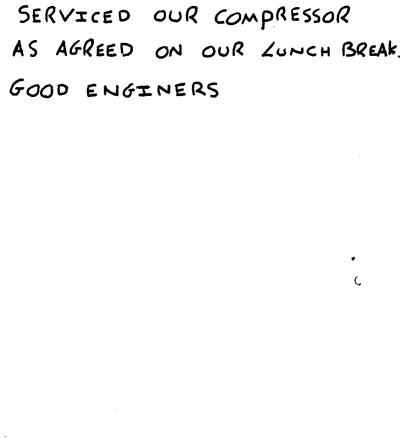 SERVICED OUR COMPRESSOR
AS AGREED ON OUR LUNCH BREAK.
GOOD ENGINERS